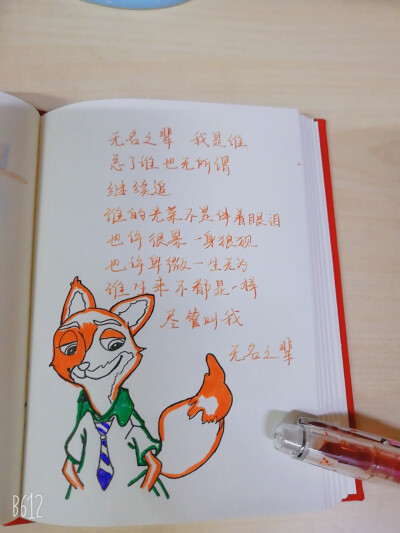 无名之辈 我是谁
忘了谁也无所谓
继续追
谁的光荣不是伴着眼泪
也许很累一身狼狈
也许卑微一生无为
谁生来不都是一样
尽管叫我
无名之辈
B612